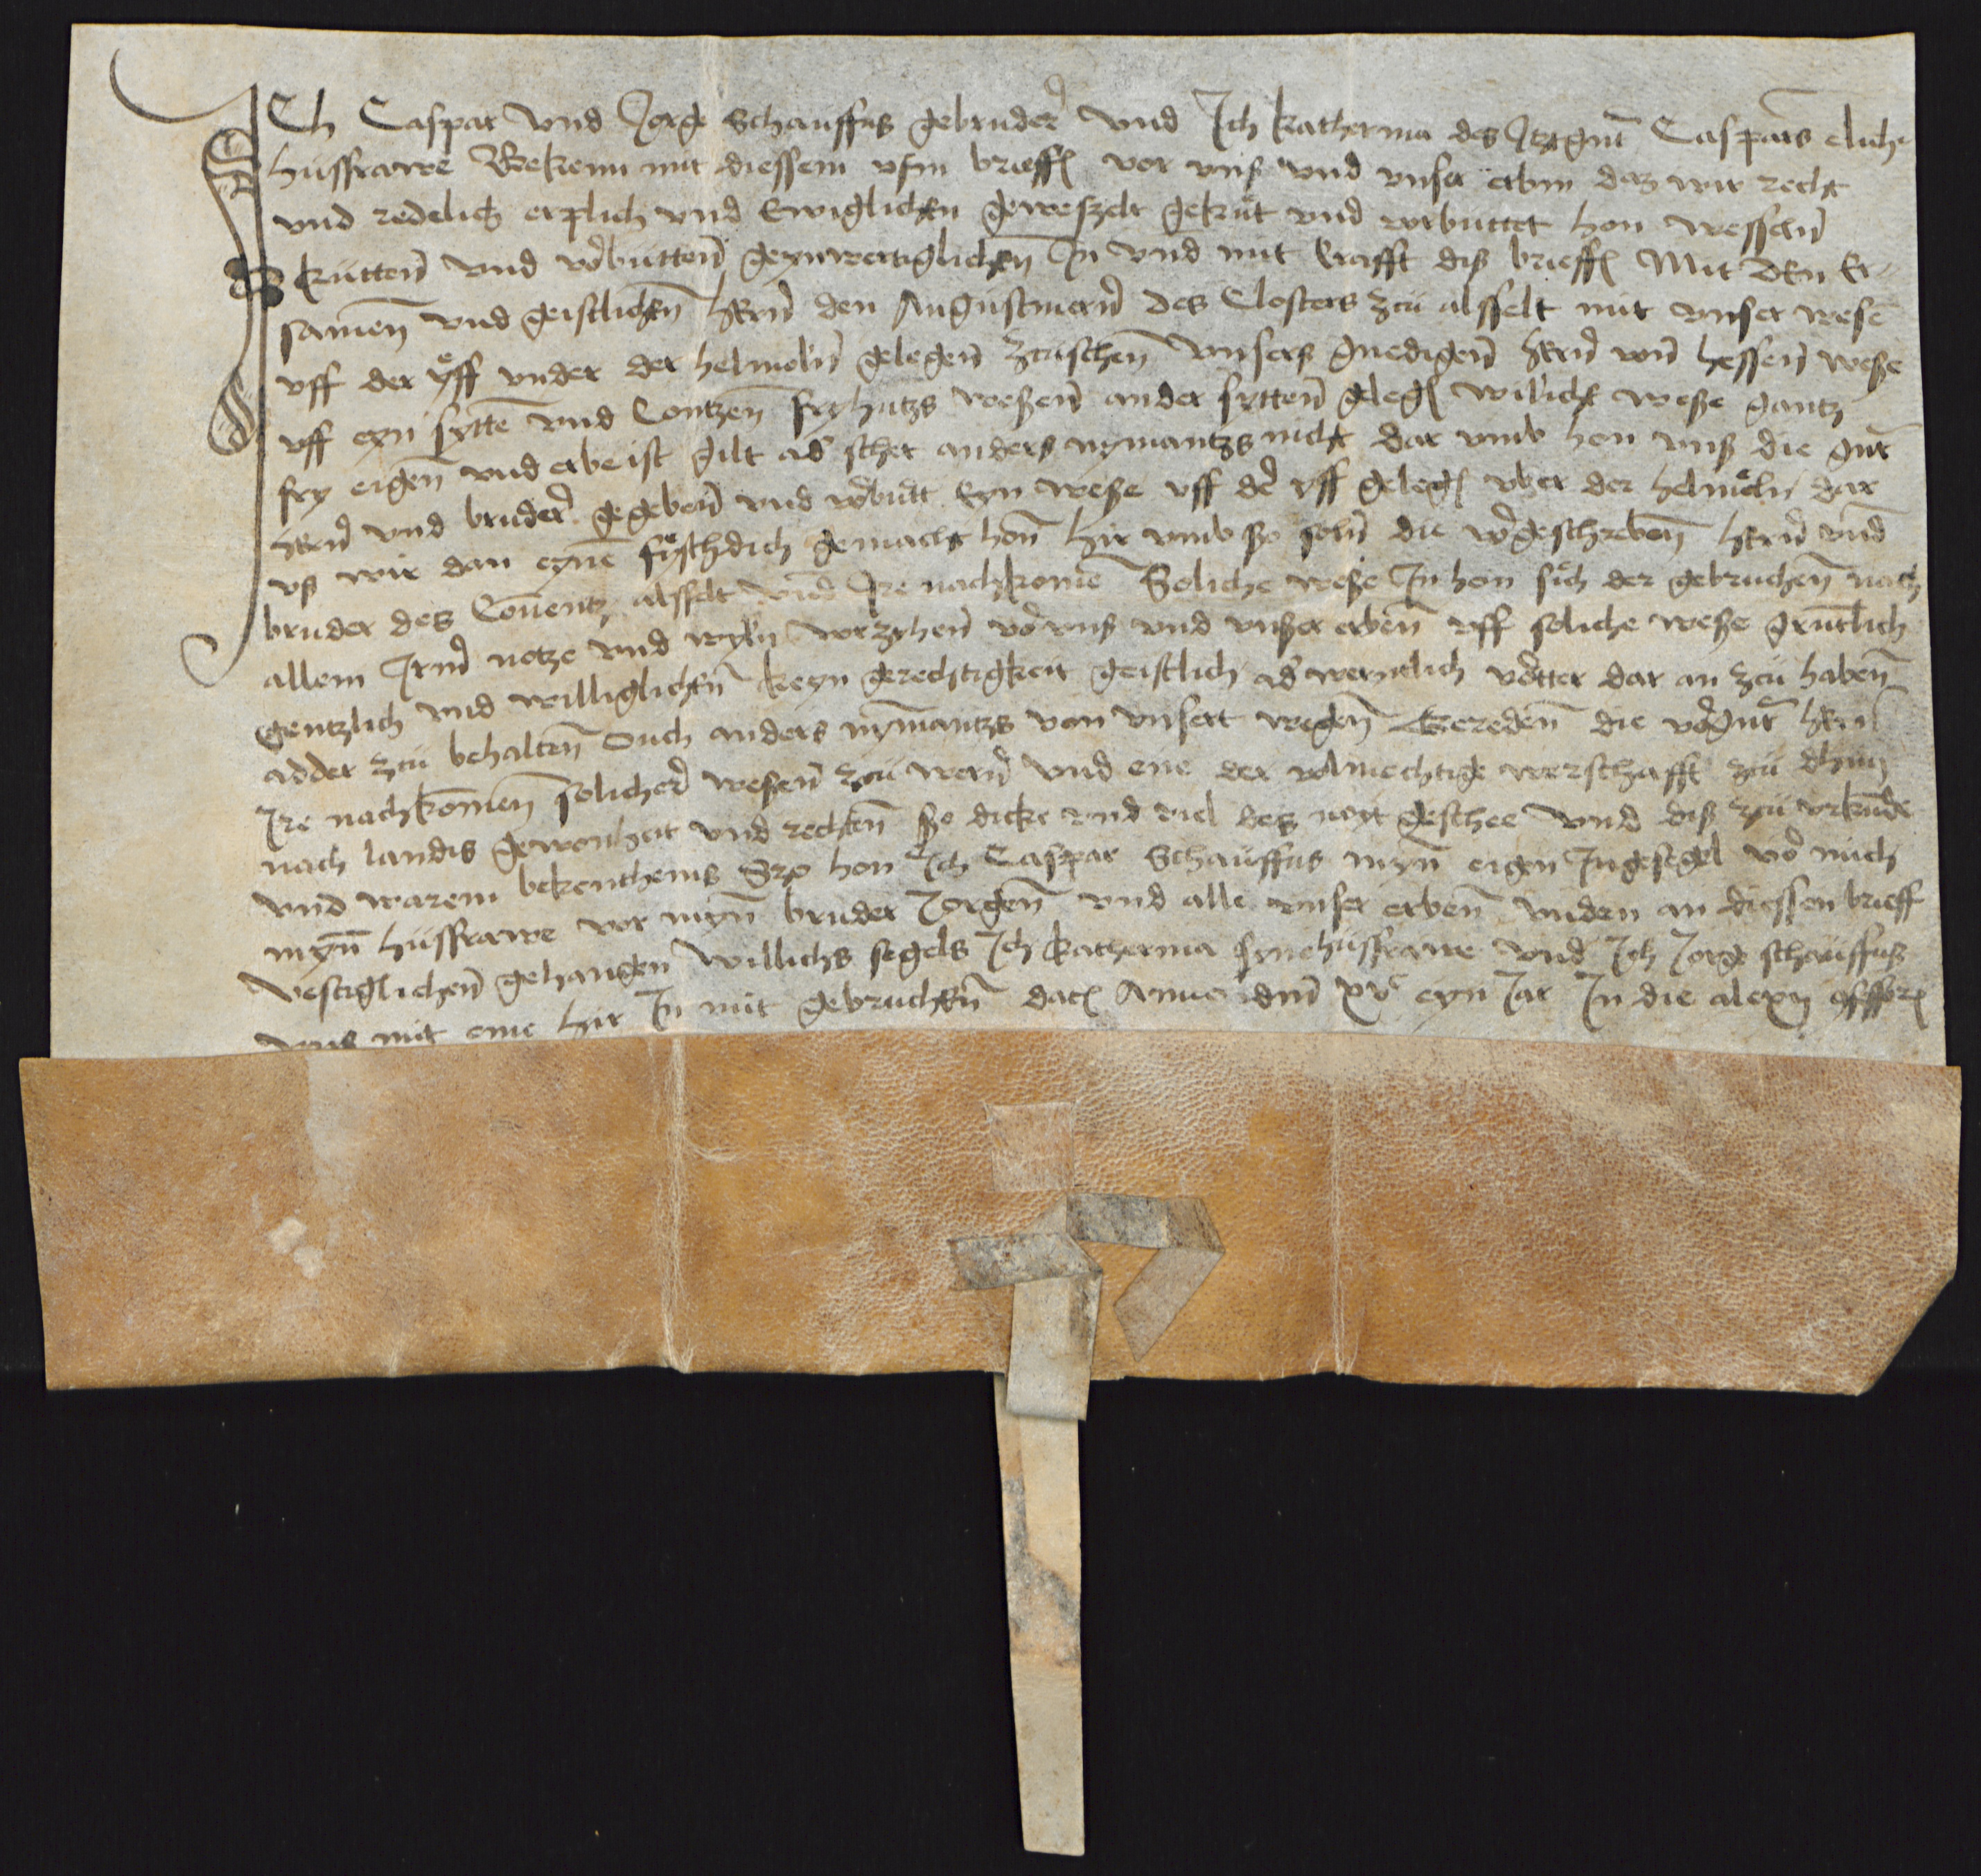 ICh Caspar und Jorge Schauffus gebruder und Ich Katherina des Jtzgnt Caspars eliche
hussfrawe Bekenn mit diessem uffin brieff vor unß und unser erbin daz wir recht
und redelich erplich und Ewiglichen geweszelt gekut und verbuttet hon wesseln
kutten und verbutten geynwertiglichen In und mit krafft diß brieffs Mit den Er-
samen und geistlichen hern den Augustinern des Closters zcu alsfelt mit unser wesen
uff der yff under der helmoln gelegen zcuschen unsers gnedigen hern von hessen weße
uff eyn sytte und Contzen fryhutzs weßen ander sytten gelegen wilich weße gantz
fry eigen und erbe ist gilt ader schet anders nymantzs nicht dar umb hon unß die gnt
hern und bruder gegeben und verbutt Eyn weße uff der yff gelegen uber der helmoln dar
uß wir dan eyne fyschdich gemacht hon hir umb ßo soln die vorgeschreben hern und
bruder des Covents alsfelt und Ire nachkomen Soliche weße In hon sich der gebruchen nach
allem Irm notze und wyln verzyhen vor unß und unßer erben uff soliche weße gruntlich
gentzlich und williglichen keyn gerechtigkeit geistlich ader werntlich vorter dar an zcu haben
adder zcu behalten Ouch anders nymantzs von unsert wegen Gereden die vorgnt hern
Ire nachkomen solicher weßen zcu wern und ene der volmechtige werschafft zcu thun
nach landis gewonheit und rechten ßo dicke und viel des noyt geschee Und diß zcu urkunde
und warem bekenthenis Szo hon Ich Caspar Schauffus myn eigen Ingesegel vor mich
myn hussfrawe vor myn bruder Jorgen und alle unser erben unden an diessen brieff
vestiglichen gehangen Willichs segels Ich Katherina syne hussfrawe und Ich Jorge schauffuß
uns mit eme hir In mit gebruchen datum Anno domini xvc eyn Jar In die alexij confessoris